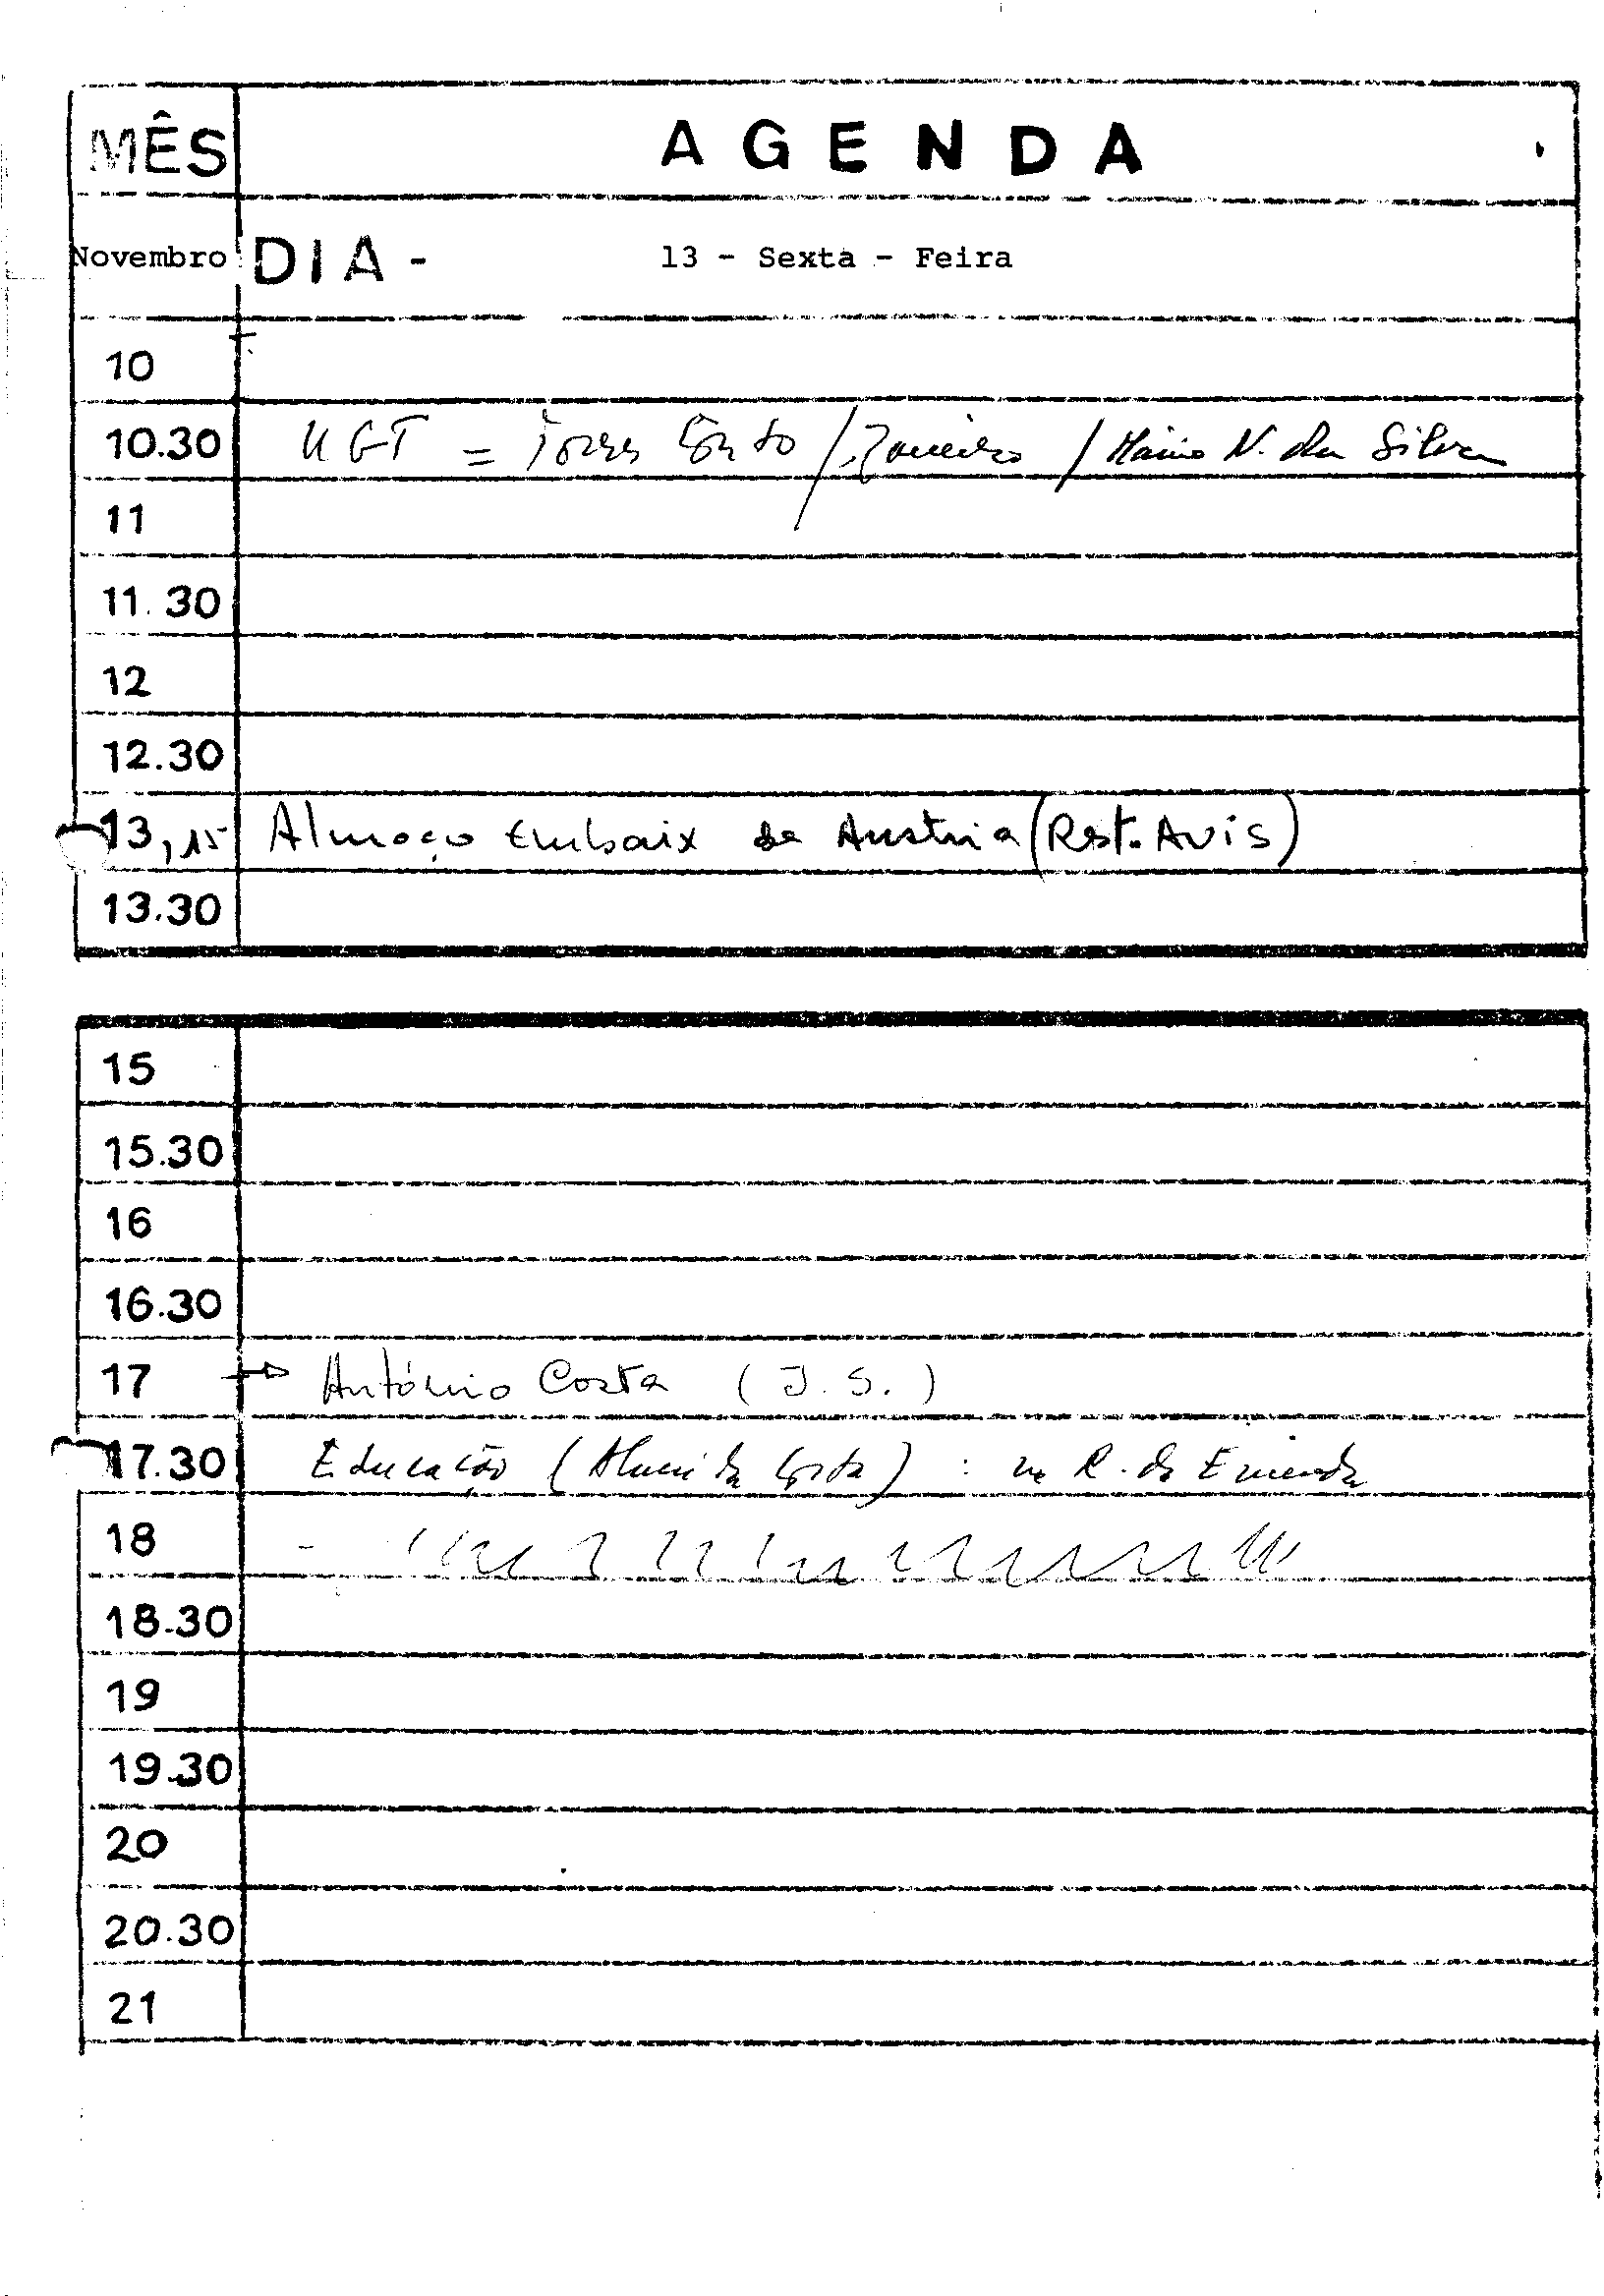 MÊS AGENDA
Novembro DIA - 13 - Sexta - Feira
10
10.30 UGT = Torres Couto / Janeiro / Mário N. da Silva
11
11.30
12
12.30
13,15 Almoço Embaix da Austria (Rest. Avis)
13.30
15
15.30
16
16.30
17 António Costa (J.S.)
17.30 Educação (Almeida Costa) : na R. da Emenda
18 -
18.30
19
19.30
20
20.30
21